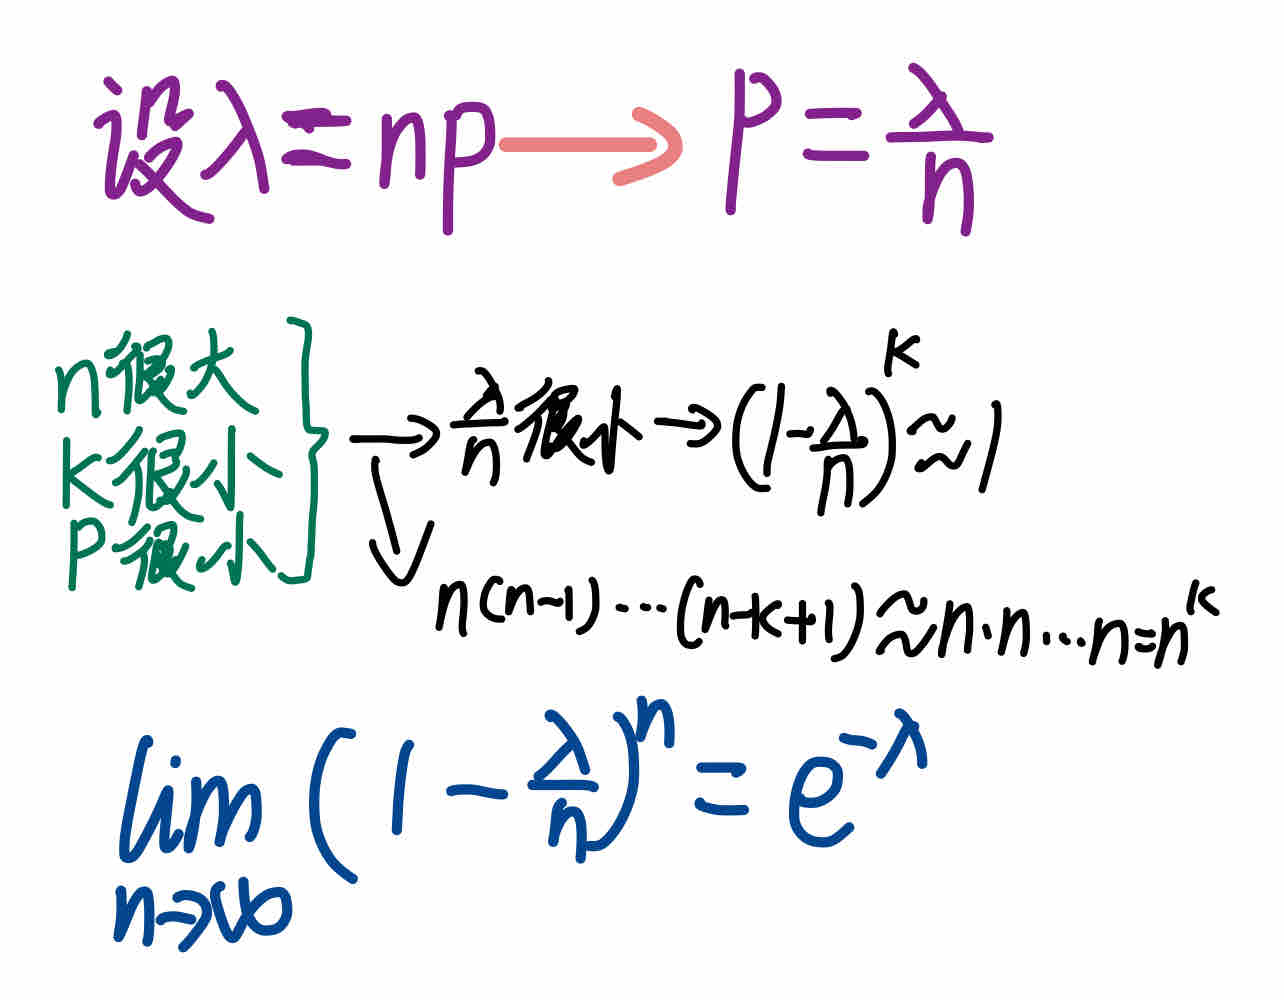 设λ=np→p=λ/n
n很大
k很小
p很小
}→λ/n很小→(1-λ/n)^k≈1
n(n-1)…(n-k+1)≈n·n·…n=n^k
lim n→∞ (1-λ/n)^n=e^-λ